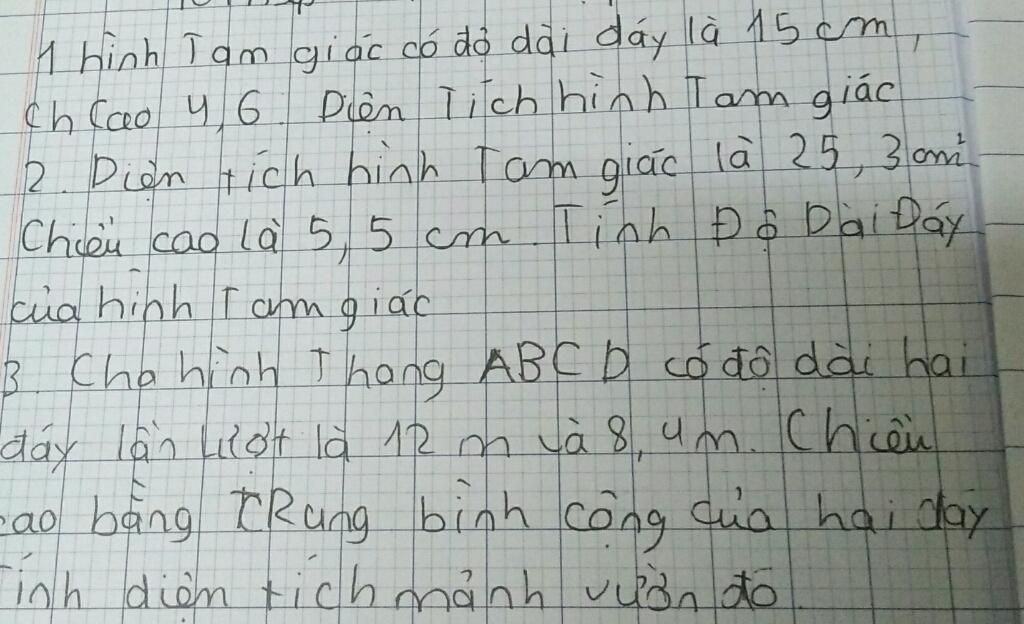 1 hình Tam giác có độ dài đáy là 15 cm,
Ch Cao 4,6. Diện Tích hình Tam giác
2. Diện tích hình Tam giác là 25,3 cm²
Chiều cao là 5,5 cm. Tính Độ Dài Đáy
của hình Tam giác
3. Cho hình Thang ABCD có độ dài hai
đáy lần lượt là 12 m và 8,4m. Chiều
cao bằng tRung bình cộng của hai đáy
Tính diện tích mảnh vườn đó.